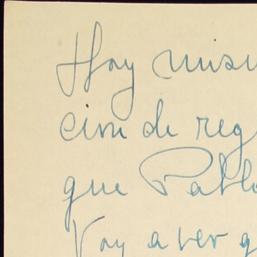 Hoy mism
cion de reg
que Pablo
Voy a ver q